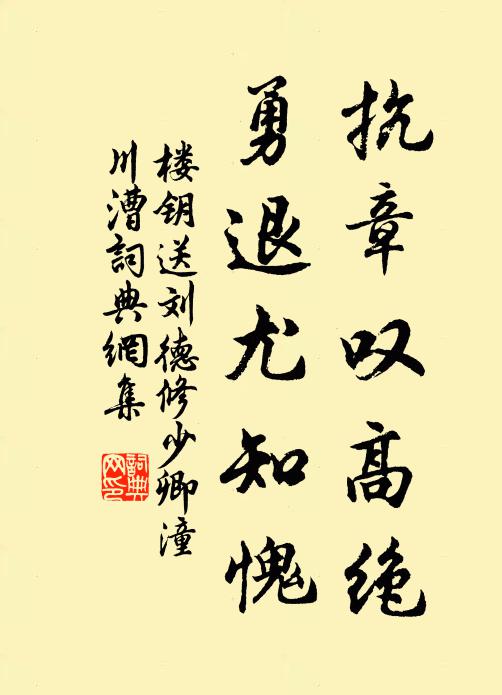 抗章叹高绝
勇退尤知愧
楼钥送刘德修少卿潼
川漕詞典網集
詞典网印